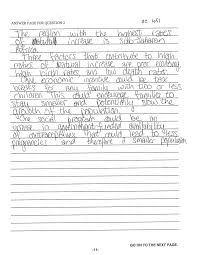 ANSWER PAGE FOR QUESTION 2
The region with the highest rates
of natural increase is Sub-Saharan
Africa.
Three factors that contribute to high
rates of natural increase are poor economy,
high birth rates, and low death rates.
One economic incentive could be tax
breaks for any family with two or less
children. This could encourage families to
stay smaller and potentially slow the
growth of the population.
One social program could be an
increase in government-funded availability
of contraceptives that could lead to less
pregnancies and therefore a smaller population.
GO ON TO THE NEXT PAGE.